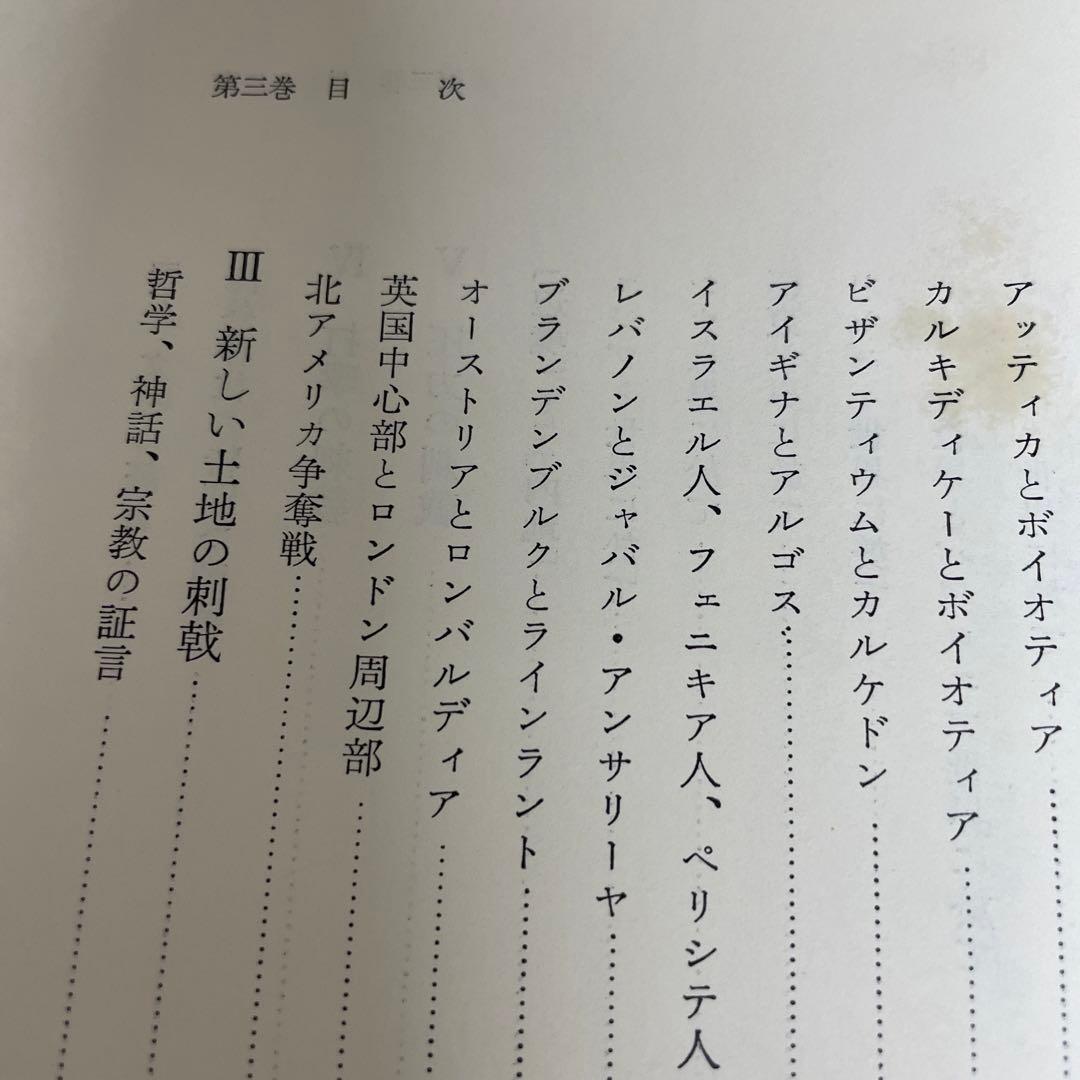 第三巻 目 次
アッティカとボイオティア
カルキディケーとボイオティア
ビザンティウムとカルケドン
アイギナとアルゴス
イスラエル人、フェニキア人、ペリシテ人
レバノンとジャバル・アンサリーヤ
ブランデンブルクとラインラント
オーストリアとロンバルディア
英国中心部とロンドン周辺部
北アメリカ争奪戦
Ⅲ 新しい土地の刺戟
哲学、神話、宗教の証言